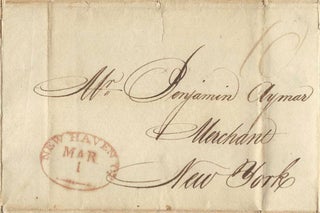 Mr. Benjamin Aymar
Merchant
New York
NEW HAVEN
MAR
1